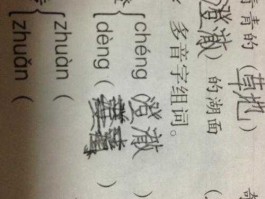 青的(草地)
澄澈)的湖面(
多音字组词。
{chéng 澄澈 )
dèng ( )
{zhuàn (
zhuǎn (